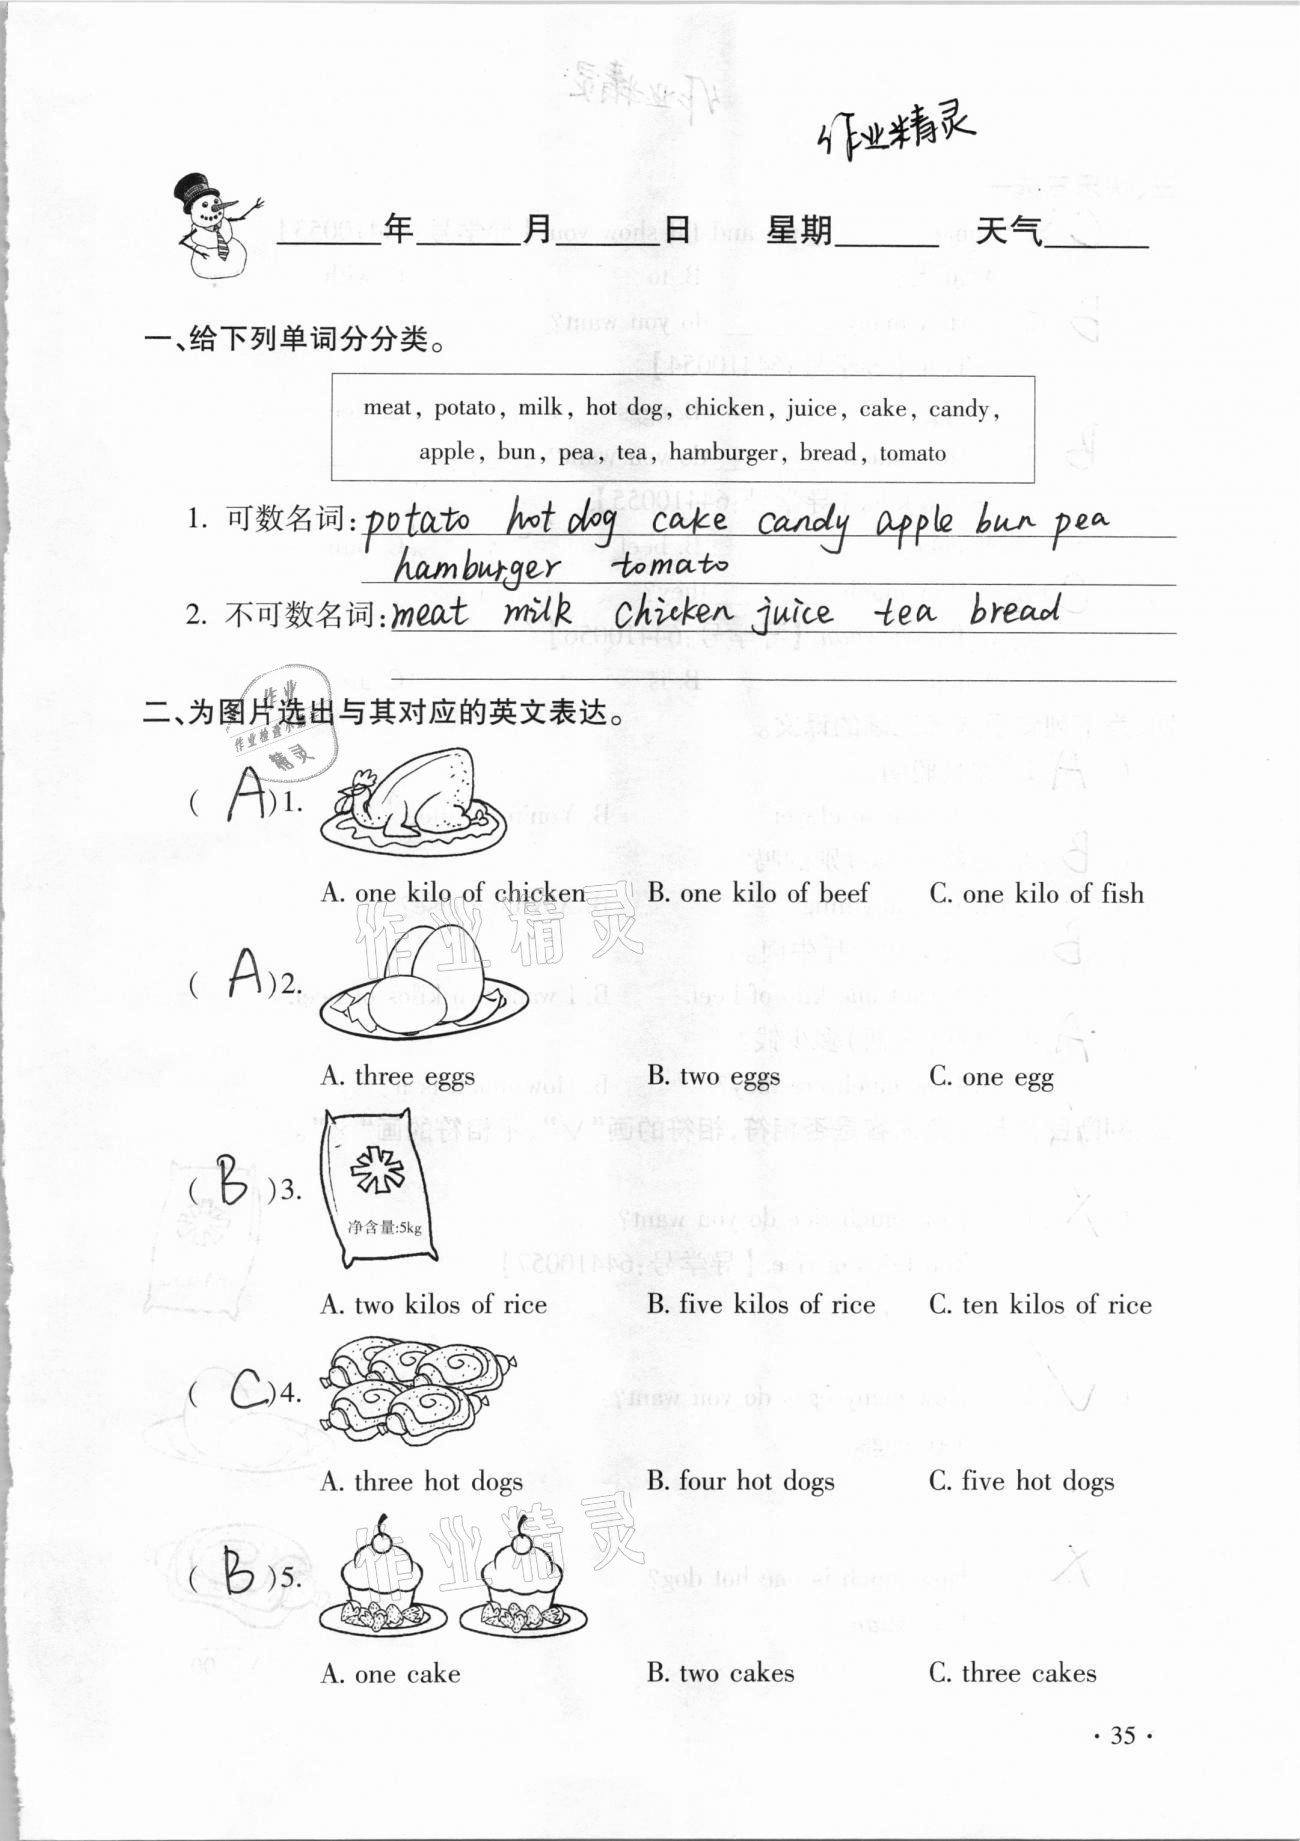 作业精灵
____年____月____日 星期____ 天气____
一、给下列单词分分类。
meat, potato, milk, hot dog, chicken, juice, cake, candy,
apple, bun, pea, tea, hamburger, bread, tomato
1. 可数名词:potato hot dog cake candy apple bun pea
hamburger tomato
2. 不可数名词:meat milk chicken juice tea bread
作业
作业检查小
精灵
二、为图片选出与其对应的英文表达。
( A )1.
A. one kilo of chicken B. one kilo of beef C. one kilo of fish
作业精灵
( A )2.
A. three eggs B. two eggs C. one egg
( B )3.
净含量:5kg
A. two kilos of rice B. five kilos of rice C. ten kilos of rice
( C )4.
A. three hot dogs B. four hot dogs C. five hot dogs
作业精灵
( B )5.
A. one cake B. two cakes C. three cakes
· 35 ·